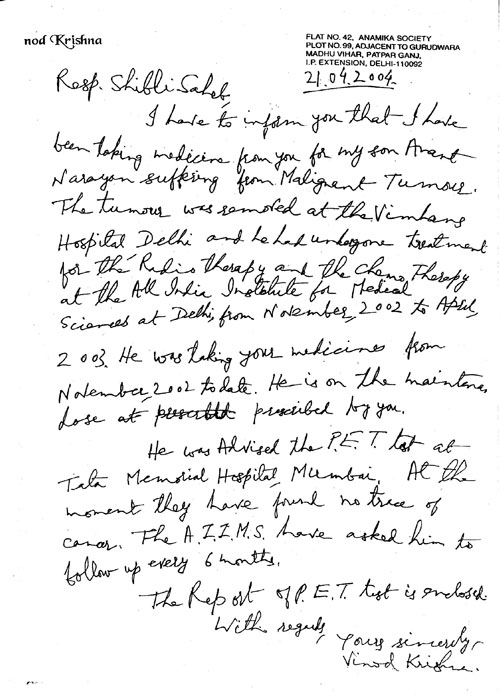 nod Krishna
FLAT NO. 42, ANAMIKA SOCIETY
PLOT NO. 99, ADJACENT TO GURUDWARA
MADHU VIHAR, PATPAR GANJ,
I.P. EXTENSION, DELHI-110092
21.04.2004.
Resp. Shibli Saheb,
I have to inform you that I have
been taking medicine from you for my son Anant
Narayan suffring from Malignant Tumour.
The tumour was removed at the Vimhans
Hospital Delhi and he had undergone treatment
for the Radio therapy and the Chemo Therapy
at the All India Institute for Medical
Sciences at Delhi, from November, 2002 to April,
2003. He was taking your medicines from
November, 2002 to date. He is on the maintenas
dose at prescribed by you.
He was Advised the P.E.T. test at
Tata Memorial Hospital, Mumbai. At the
moment they have found no trace of
cancer. The A.I.I.M.S. have asked him to
follow up every 6 months.
The Report of P.E.T. test is enclosed.
With regards,
Yours sincerely,
Vinod Krishna.